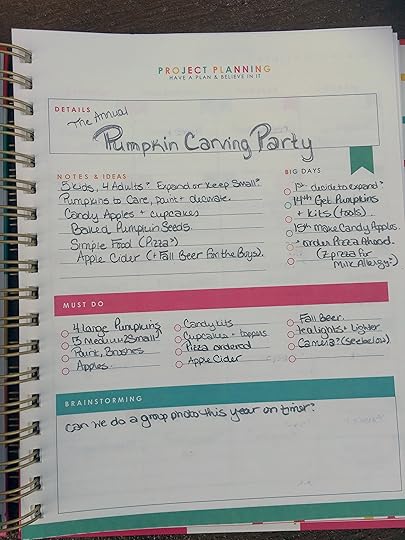 PROJECT PLANNING
HAVE A PLAN & BELIEVE IN IT
DETAILS
The Annual
Pumpkin Carving Party
NOTES & IDEAS
5 kids, 4 Adults? Expand or Keep Small?
Pumpkins to Carve, paint + decorate.
Candy Apples + cupcakes
Baked Pumpkin Seeds.
Simple Food (Pizza?)
Apple Cider (+ Fall Beer for the Boys).
BIG DAYS
1st - decide to expand?
14th Get Pumpkins
+ Kits (tools).
15th make Candy Apples
+ order Pizza Ahead.
(2 pizza for
Milk Allergy?)
MUST DO
4 large Pumpkins
5 Medium 2 Small?
Paint, Brushes
Apples
Candy Kits
Cupcakes + toppers
Pizza ordered
Apple Cider
Fall Beer
tealights + lighter
Camera? (see below)
BRAINSTORMING
can we do a group photo this year on timer?